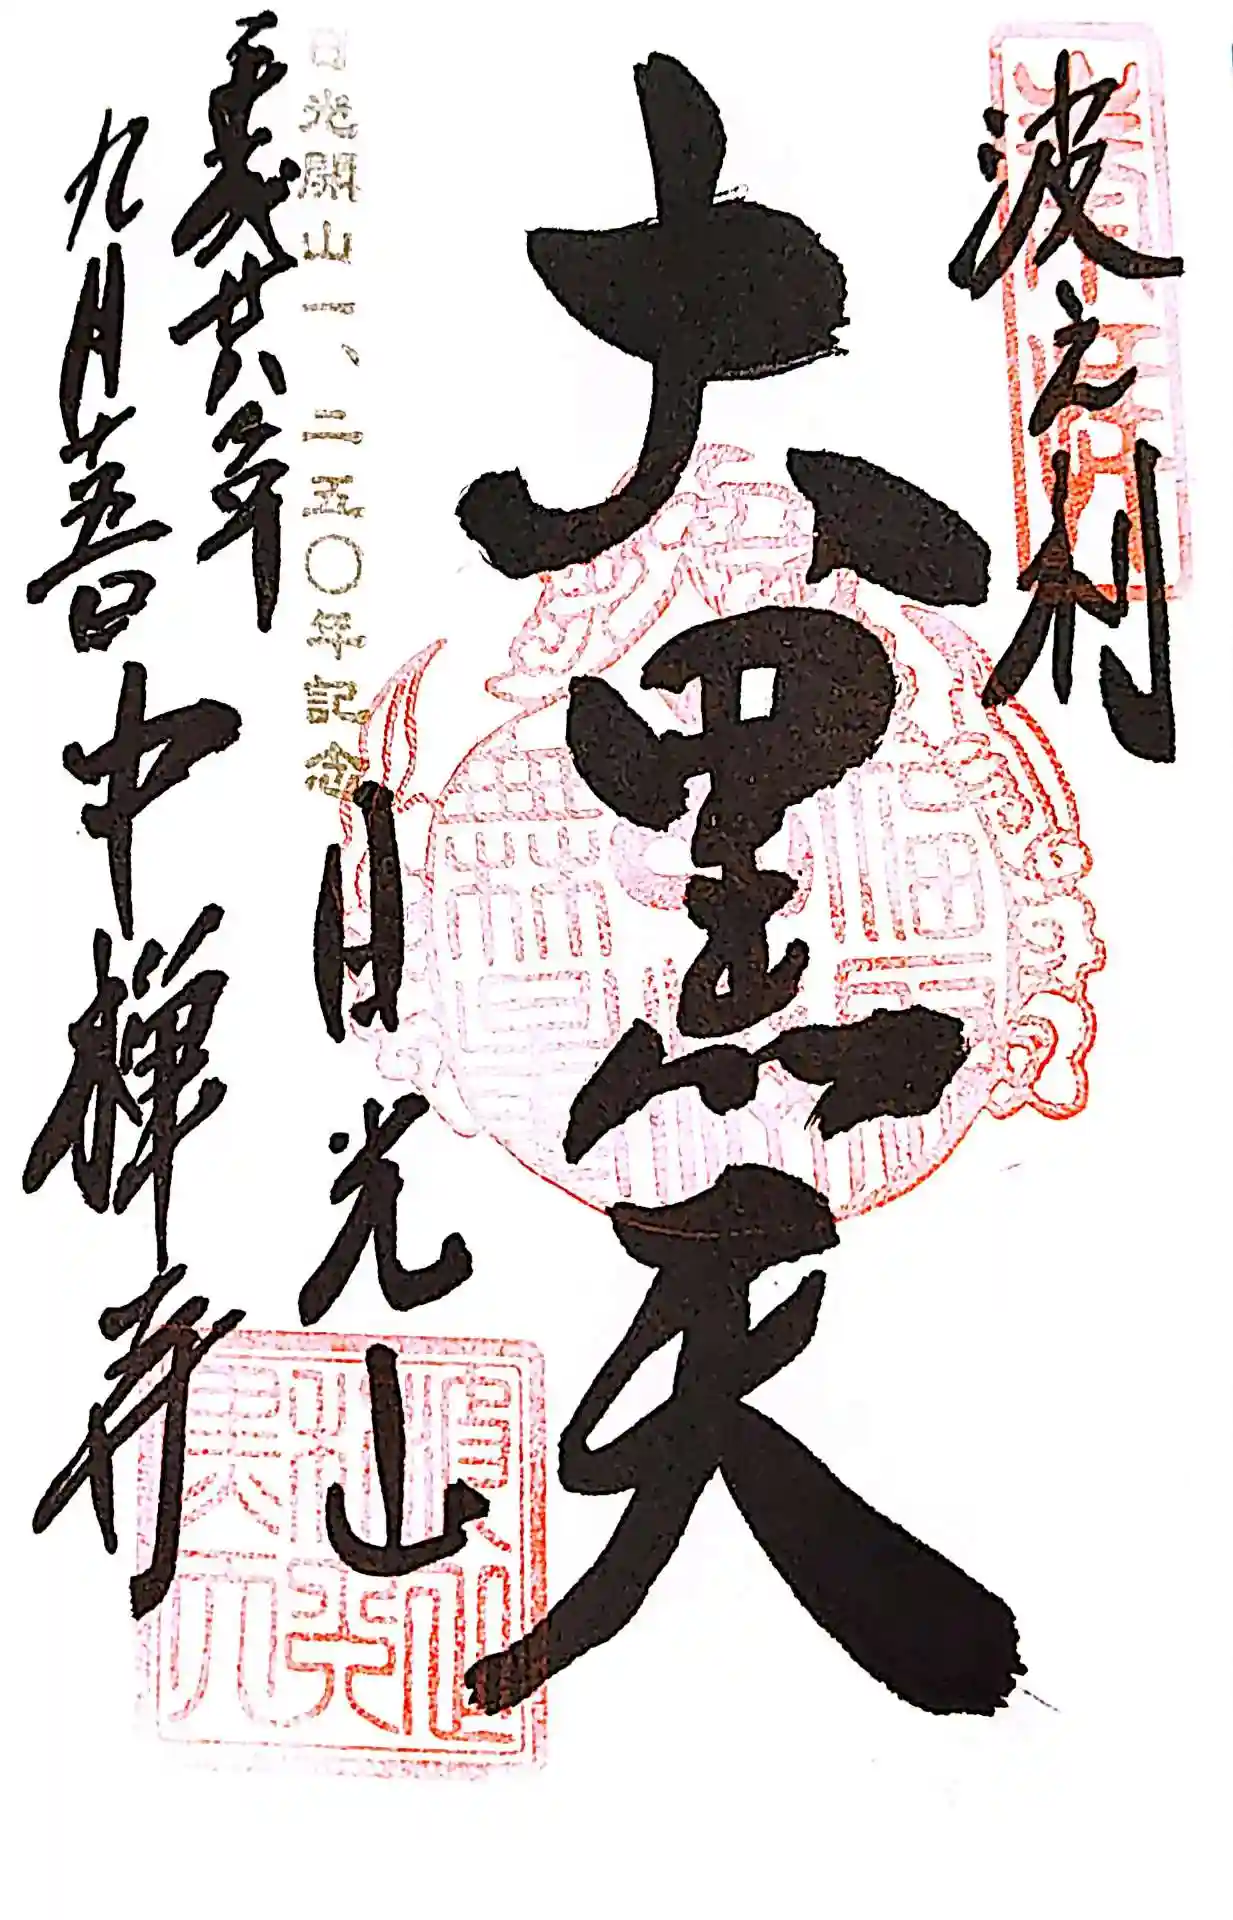 波之利
大黒天
日光開山一、二五〇年記念
日光山
平成廿八年
九月十五日
中禅寺